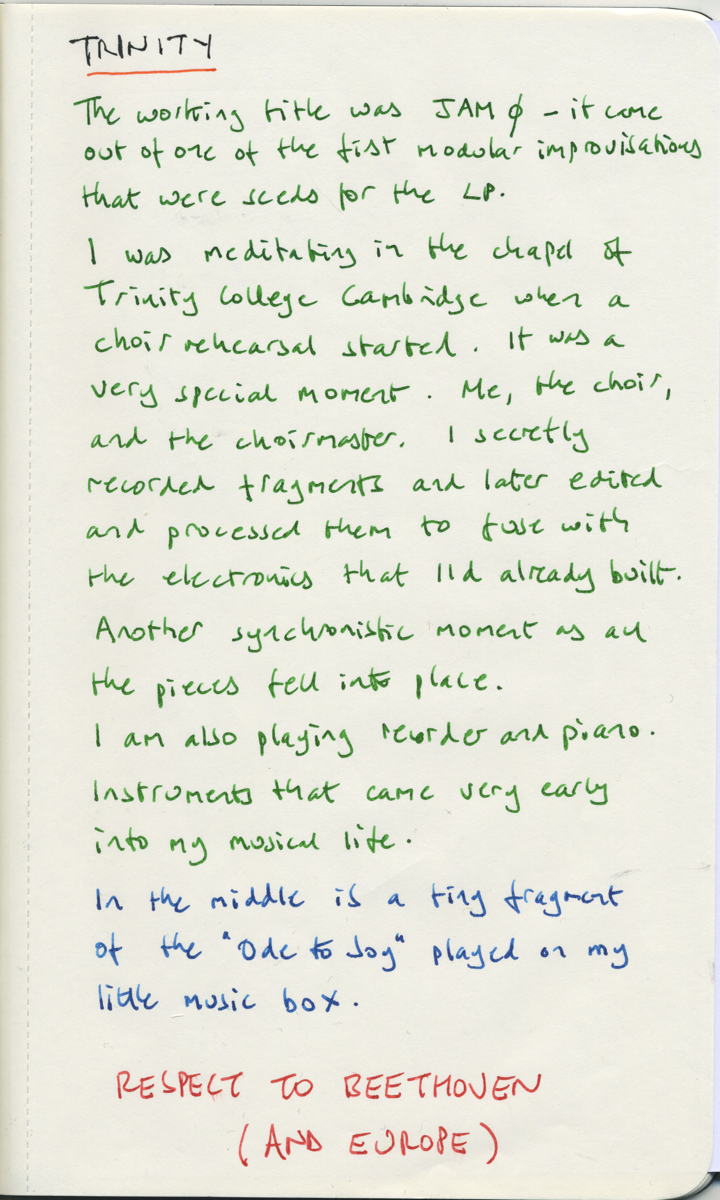 TRINITY
The working title was JAM ϕ - it came
out of one of the first modular improvisations
that were seeds for the LP.
I was meditating in the chapel of
Trinity College Cambridge when a
choir rehearsal started. It was a
very special moment. Me, the choir,
and the choirmaster. I secretly
recorded fragments and later edited
and processed them to fuse with
the electronics that I'd already built.
Another synchronistic moment as all
the pieces fell into place.
I am also playing recorder and piano.
Instruments that came very early
into my musical life.
In the middle is a tiny fragment
of the "Ode to Joy" played on my
little music box.
RESPECT TO BEETHOVEN
(AND EUROPE)